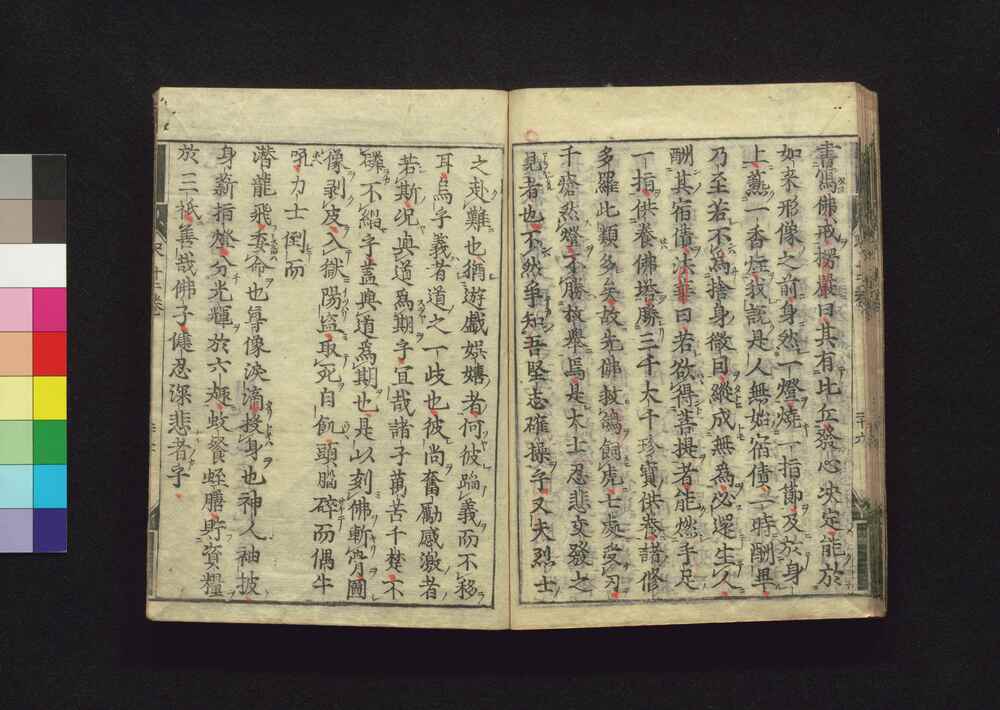 書寫佛戒楞嚴曰其有比丘發心決定能於
如來形像之前身然一燈燒一指節及於身
上爇一香炷我說是人無始宿債一時酬畢
乃至若不為捨身微因縱成無為必還生人
酬其宿債法華曰若欲得菩提者能燃手足
一指供養佛塔勝三千大千珍寶供養諸修
多羅此類多矣故先佛救鴿飼虎
千瘡然燈不勝枚舉焉是大士忍悲交發之
見者也不然乎知吾堅志確操乎又夫烈士
之赴難也猶遊戲娛嬉者何彼蹈義而不移
耳烏乎義者道之一歧也彼尚奮勵感激者
若斯况與道為期乎宜哉諸子萬苦千楚不
礫不紹乎蓋與道為期也是以刻佛斬膂圖
像剥皮入獄陽盜取死自刎頭腦碎而偶牛
吼力士倒而
潛龍飛委命也尋像淚滴投身也神人袖披
身薪指燈分光輝於六極蚊餐蛭膳貯資糧
於三祇善哉佛子慊忍深悲者乎